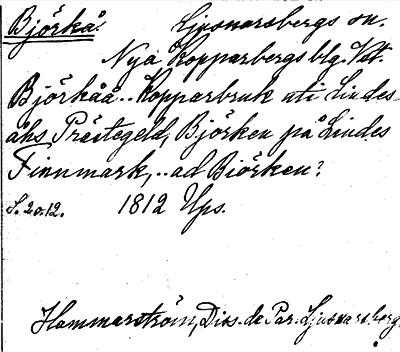 Björkå. Ljusnarsbergs sn.
Nya Kopparbergs blg. Vstm.
Björkåå... Kopparbruk uti Lindes
åhs Prästegeld, Björken på Lindes
Finnmark, .. ad Biörken?
S. 20. 12. 1812 Ups.
Hammarström, Diss. de Par. Ljusnarsberg.